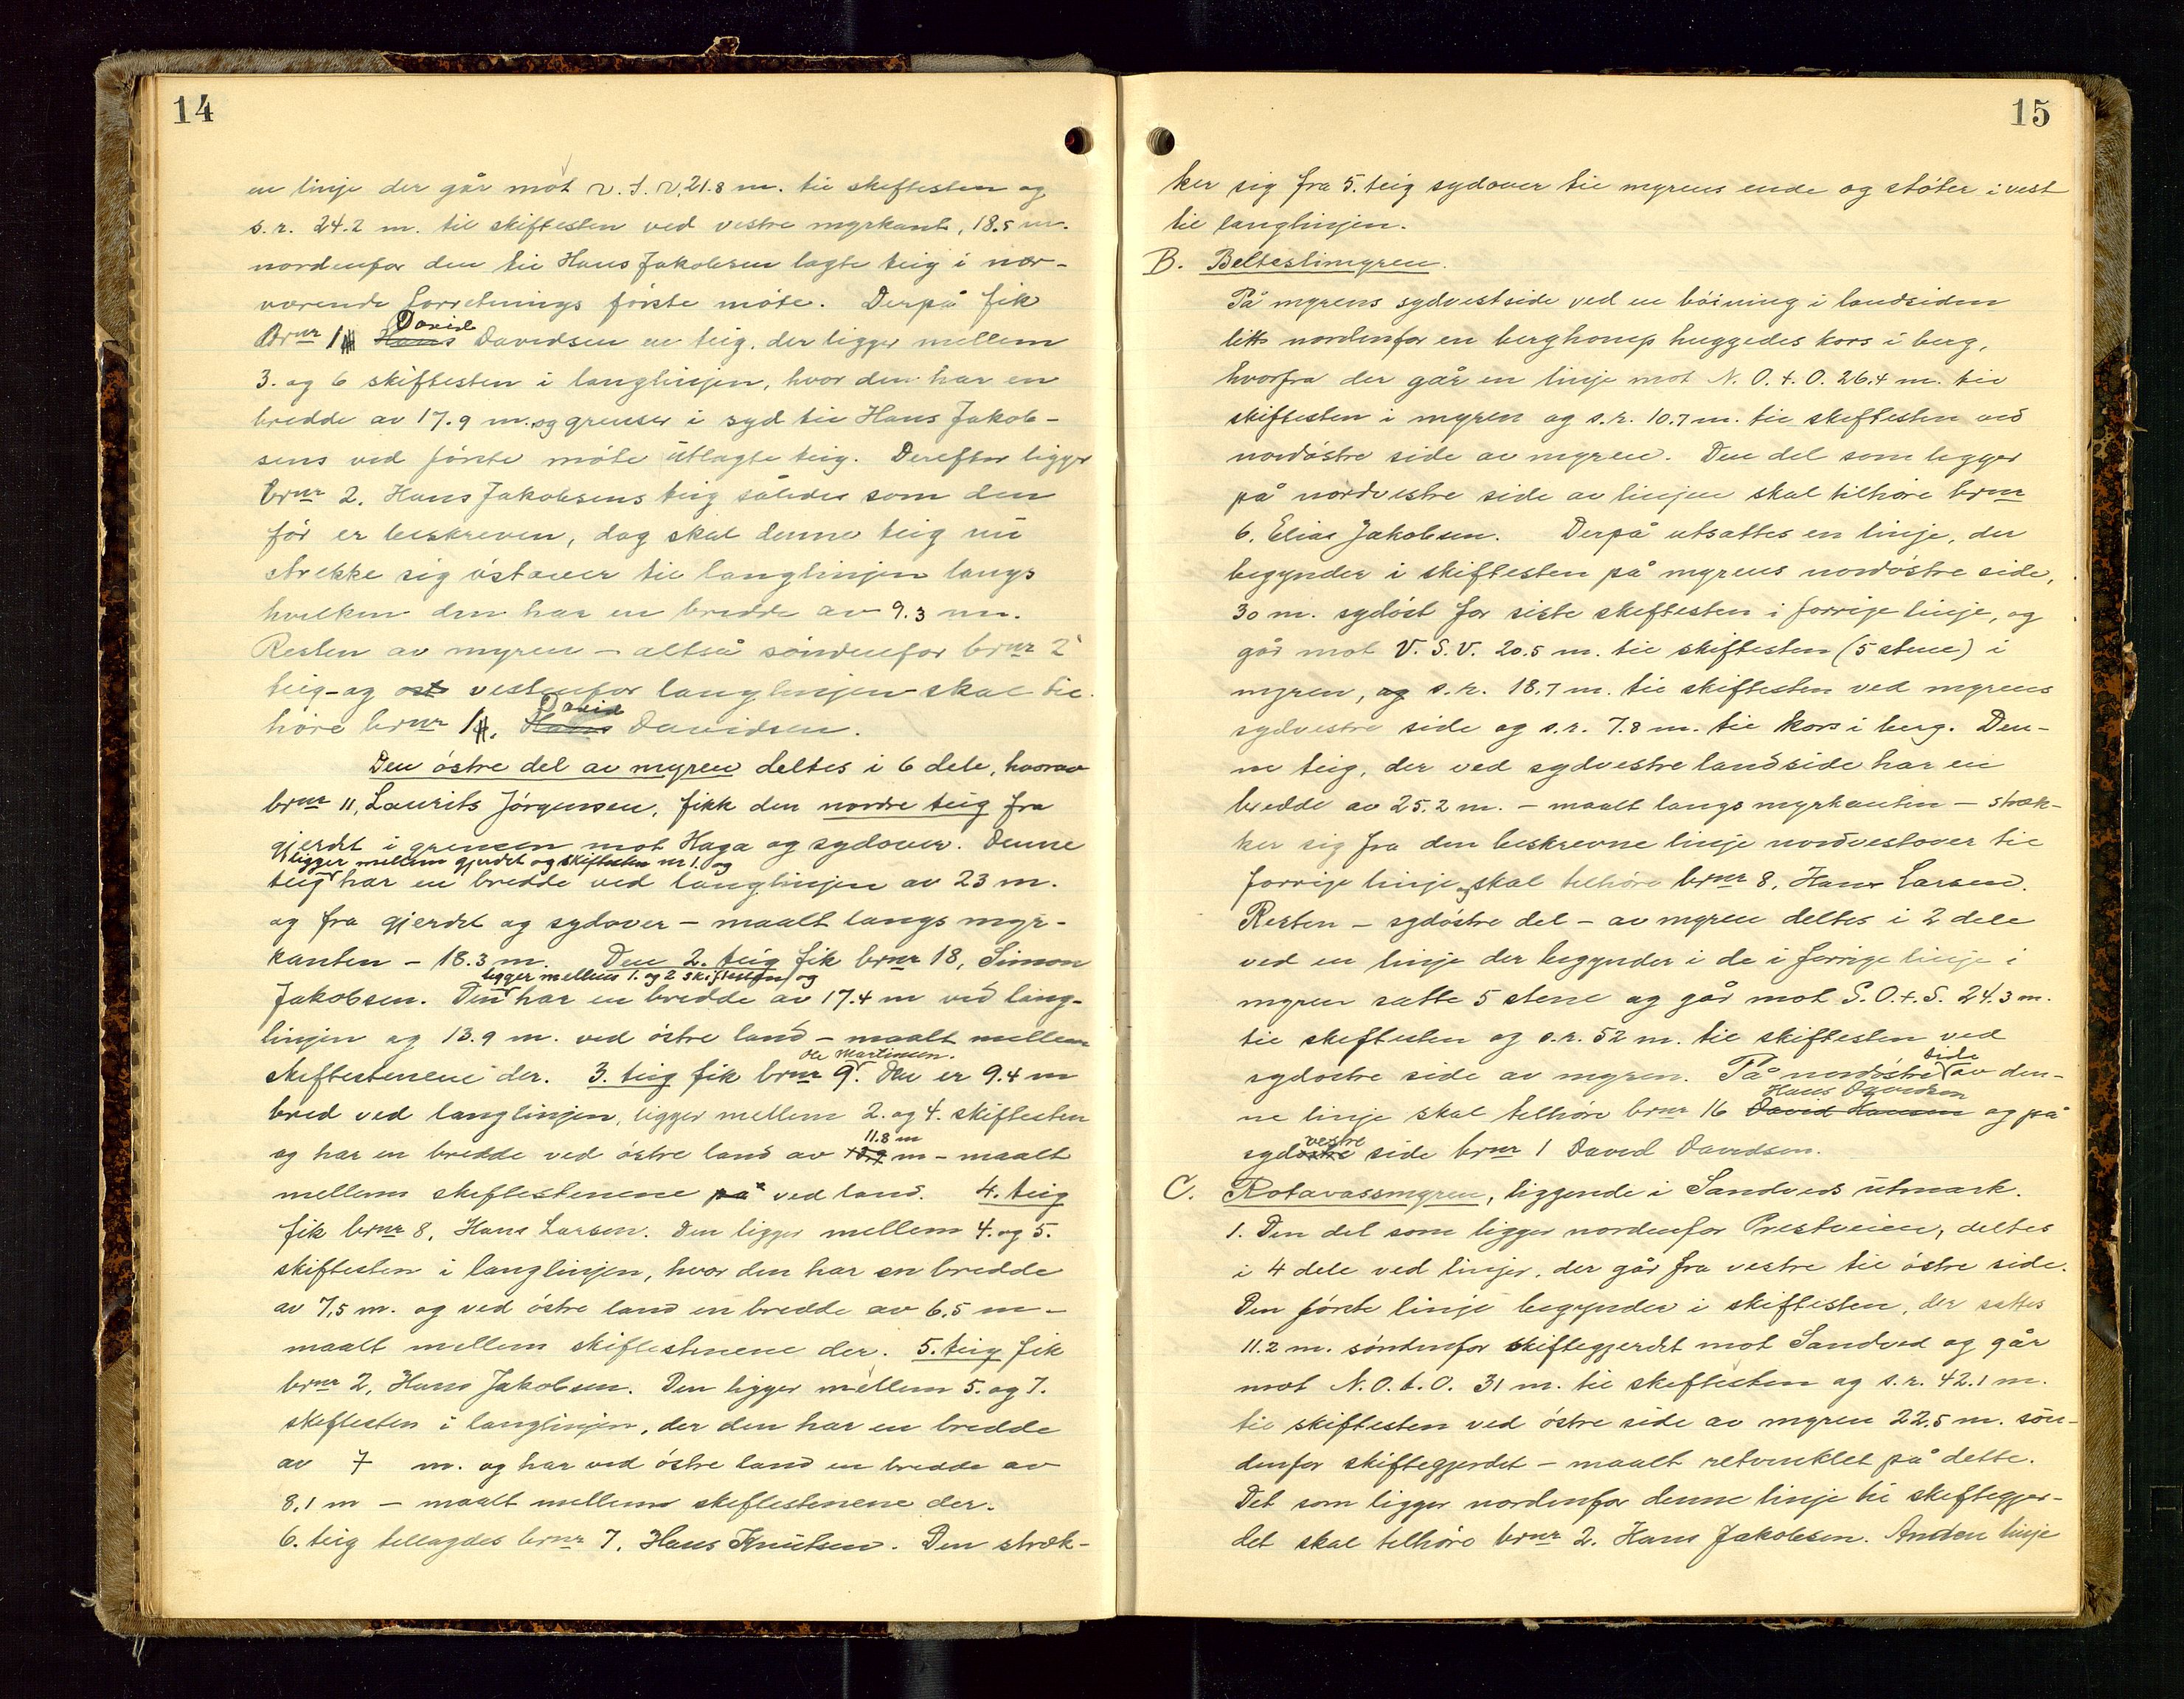 14
en linje der går mot V. t. V. 21.8 m. til skiftesten og
s. r. 24.2 m. til skiftesten ved vestre myrkant, 18.5 m.
nordenfor den til Hans Jakobsen lagte teig i nær-
værende forretnings første møte. Derpå fik
Brnr 1 David Davidsen en teig, der ligger mellem
3. og 6 skiftesten i langlinjen, hvor den har en
bredde av 17.9 m. og grenser i syd til Hans Jakob-
sens ved første møte utlagte teig. Derefter ligger
brnr 2. Hans Jakobsens teig således som den
før er beskreven, dog skal denne teig nu
strekke sig østover til langlinjen langs
hvilken den har en bredde av 9.3 m.
Resten av myren – altså søndenfor brnr 2
teig – og vestenfor langlinjen skal til-
høre brnr 1. David Davidsen.
Den østre del av myren deltes i 6 dele, hvorav
brnr 11, Laurits Jørgensen, fikk den nordre teig fra
gjerdet i grensen mot Haga og sydover. Denne
ligger mellem gjerdet og skiftesten nr 1. og
teig har en bredde ved langlinjen av 23 m.
og fra gjerdet og sydover – maalt langs myr-
kanten – 18.3 m. Den 2. teig fik brnr 18, Simon
ligger mellem 1. og 2 skiftesten og
Jakobsen. Den har en bredde av 17.4 m ved lang-
linjen og 13.9 m. ved østre land – maalt mellem
Ole Martinsen.
skiftestenene der. 3. teig fik brnr 9. Den er 9.4 m
bred ved langlinjen, ligger mellem 2. og 4. skiftesten
11.8 m
og har en bredde ved østre land av m – maalt
mellem skiftestenene på ved land. 4. teig
fik brnr 8, Hans Larsen. Den ligger mellem 4. og 5.
skiftesten i langlinjen, hvor den har en bredde
av 7,5 m. og ved østre land en bredde av 6,5 m –
maalt mellem skiftestenene der. 5. teig fik
brnr 2, Hans Jakobsen. Den ligger mellem 5. og 7.
skiftesten i langlinjen, der den har en bredde
av 7 m. og har ved østre land en bredde av
8,1 m – maalt mellem skiftestenene der.
6. teig tillagdes brnr 7. Hans Knutsen. Den stræk-
15
ker sig fra 5. teig sydover til myrens ende og støter i vest
til langlinjen.
B. Beltestimyren.
På myrens sydvestside ved en bøining i landsiden
litt nordenfor en berghomp huggedes kors i berg,
hvorfra der går en linje mot N. O. t. O. 26.4 m. til
skiftesten i myren og s. r. 10.7 m. til skiftesten ved
nordøstre side av myren. Den del som ligger
på nordvestre side av linjen skal tilhøre brnr
6. Elias Jakobsen. Derpå utsattes en linje, der
begynder i skiftesten på myrens nordøstre side,
30 m. sydøst for siste skiftesten i forrige linje, og
går mot V. S. V. 20.5 m. til skiftesten (5 stene) i
myren, og s. r. 18.7 m. til skiftesten ved myrens
sydvestre side og s. r. 7.8 m. til kors i berg. Den-
ne teig, der ved sydvestre landside har en
bredde av 25.2 m. – maalt langs myrkanten – stræk-
ker sig fra den beskrevne linje nordvestover til
forrige linje og skal tilhøre brnr 8, Hans Larsen.
Resten – sydøstre del – av myren deltes i 2 dele
ved en linje der begynder i de i forrige linje i
myren satte 5 stene og går mot S. O. t. S. 24.3 m.
til skiftesten og s. r. 52 m. til skiftesten ved
sydøstre side av myren. På nordøstre side av den-
ne linje skal tilhøre brnr 16 David Hansen Hans Davidsen og på
sydøstre vestre side brnr 1 David Davidsen.
C. Rotavassmyren, liggende i Sandveds utmark.
1. Den del som ligger nordenfor Prestveien, deltes
i 4 dele ved linjer, der går fra vestre til østre side.
Den første linje begynder i skiftesten, der sattes
11.2 m. søndenfor skiftegjerdet mot Sandved og går
mot N. O. t. O. 31 m. til skiftesten og s. r. 42.1 m.
til skiftesten ved østre side av myren 22.5 m. søn-
denfor skiftegjerdet – maalt retvinklet på dette.
Det som ligger nordenfor denne linje til skiftegjer-
det skal tilhøre brnr 2. Hans Jakobsen. Anden linje